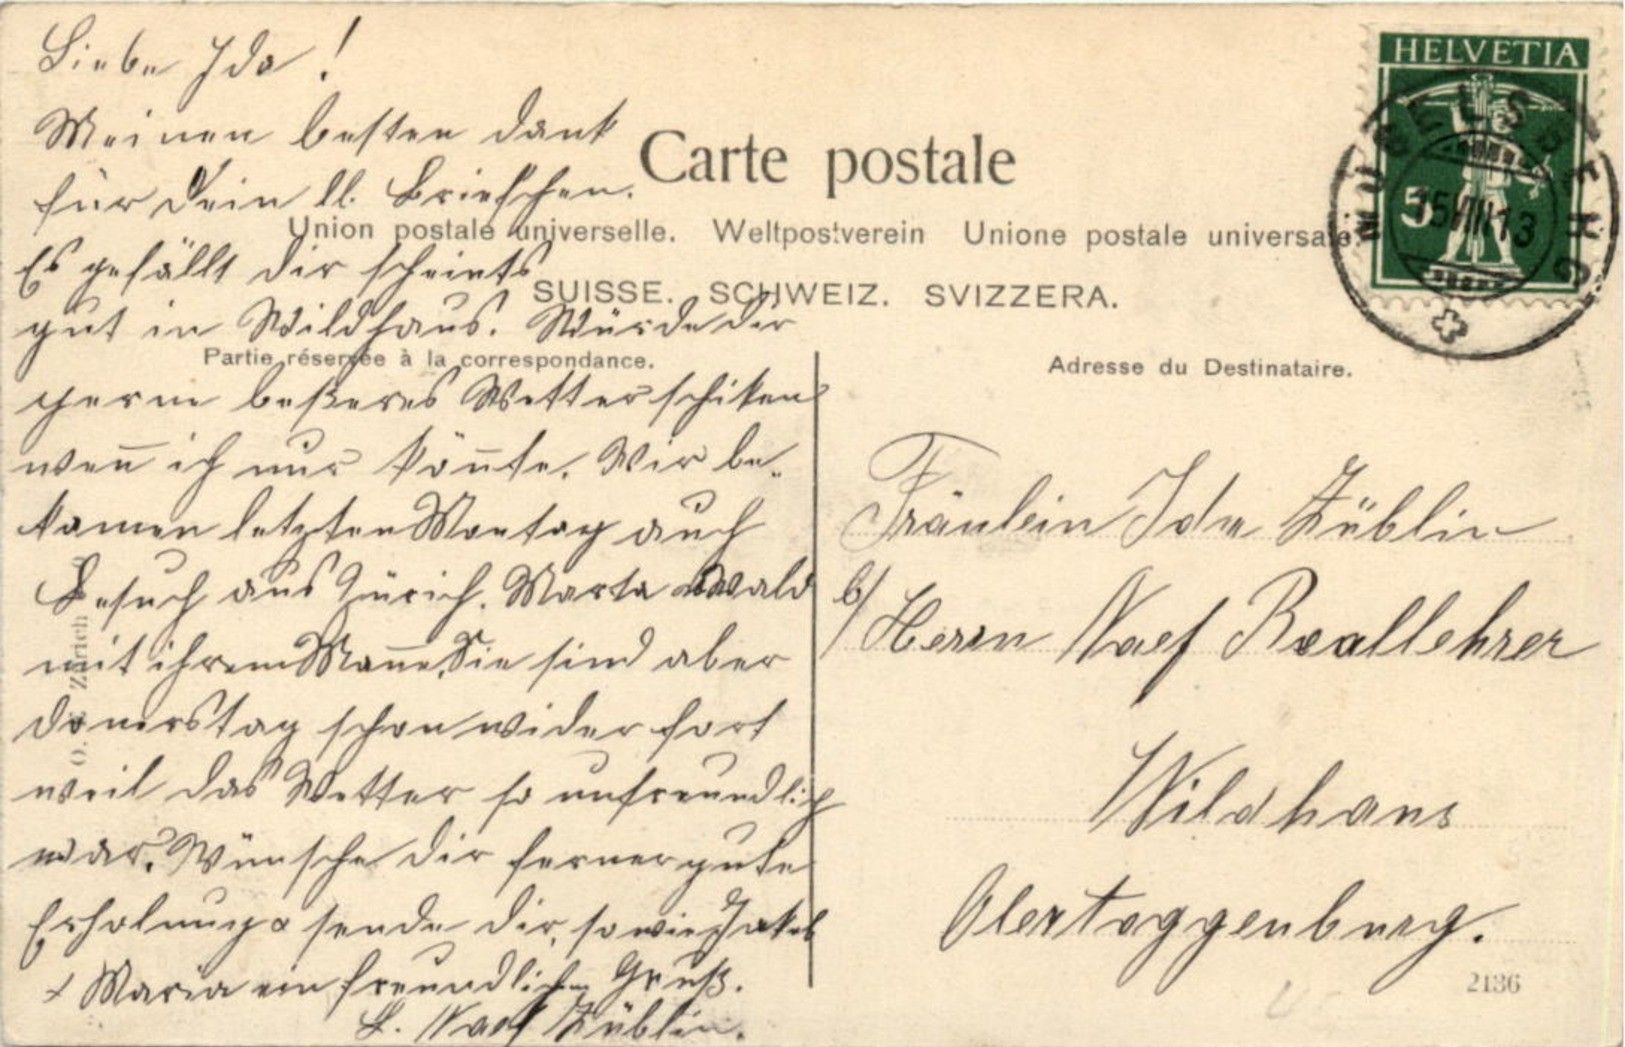 Liebe Ida!
Meinen besten Dank
für Dein lb. Briefchen.
Es gefällt Dir scheints
gut in Wildhaus. Würde Dir
gerne beßeres Wetter schiken
wen̄ ich nur kön̄te. Wir be-
kamen letzten Montag auch
Besuch aus Zürich. Marta Wald
mit ihrem Man̄e. Sie sind aber
Donerstag schon wider fort
weil das Wetter so unfreundlich
war. Wünsche Dir ferner gute
Erholung & sende Dir, sowie Jakob
+ Maria ein freundlichen Gruß.
L. Naef Züblin.
Carte postale
Union postale universelle. Weltpostverein Unione postale universale.
SUISSE. SCHWEIZ. SVIZZERA.
Partie réservée à la correspondance.
Adresse du Destinataire.
HELVETIA
5
MUGELSBERG
15 VIII 13
Fräulein Ida Züblin
b/ Herrn Naef Reallehrer
Wildhaus
Obertoggenburg.
2136
Zürich